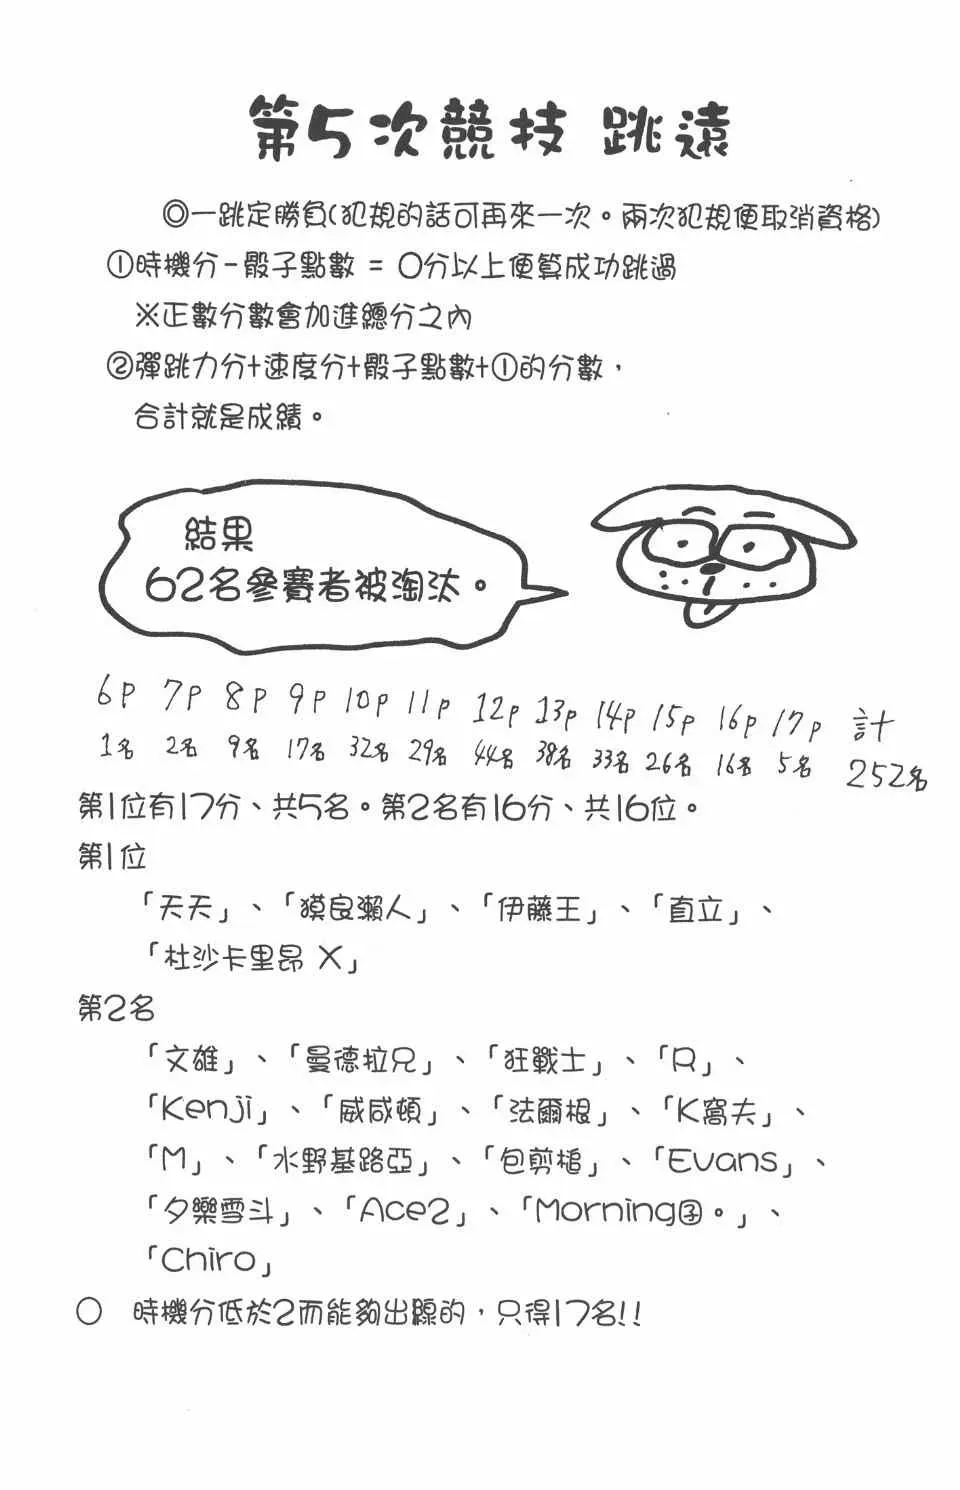 第5次競技 跳遠
◎一跳定勝負(犯規的話可再來一次。兩次犯規便取消資格)
①時機分-骰子點數 = 0分以上便算成功跳過
※正數分數會加進總分之內
②彈跳力分+速度分+骰子點數+①的分數,
合計就是成績。
結果
62名參賽者被淘汰。
6p 7p 8p 9p 10p 11p 12p 13p 14p 15p 16p 17p 計
1名 2名 9名 17名 32名 29名 44名 38名 33名 26名 16名 5名 252名
第1位有17分、共5名。第2名有16分、共16位。
第1位
「天天」、「獏良瀨人」、「伊藤王」、「直立」、
「杜沙卡里昂 X」
第2名
「文雄」、「曼德拉兄」、「狂戰士」、「R」、
「Kenji」、「威咸頓」、「法爾根」、「K窩夫」、
「M」、「水野基路亞」、「包剪槌」、「Evans」、
「夕樂雪斗」、「Ace2」、「Morning团。」、
「Chiro」
○ 時機分低於2而能夠出線的,只得17名!!